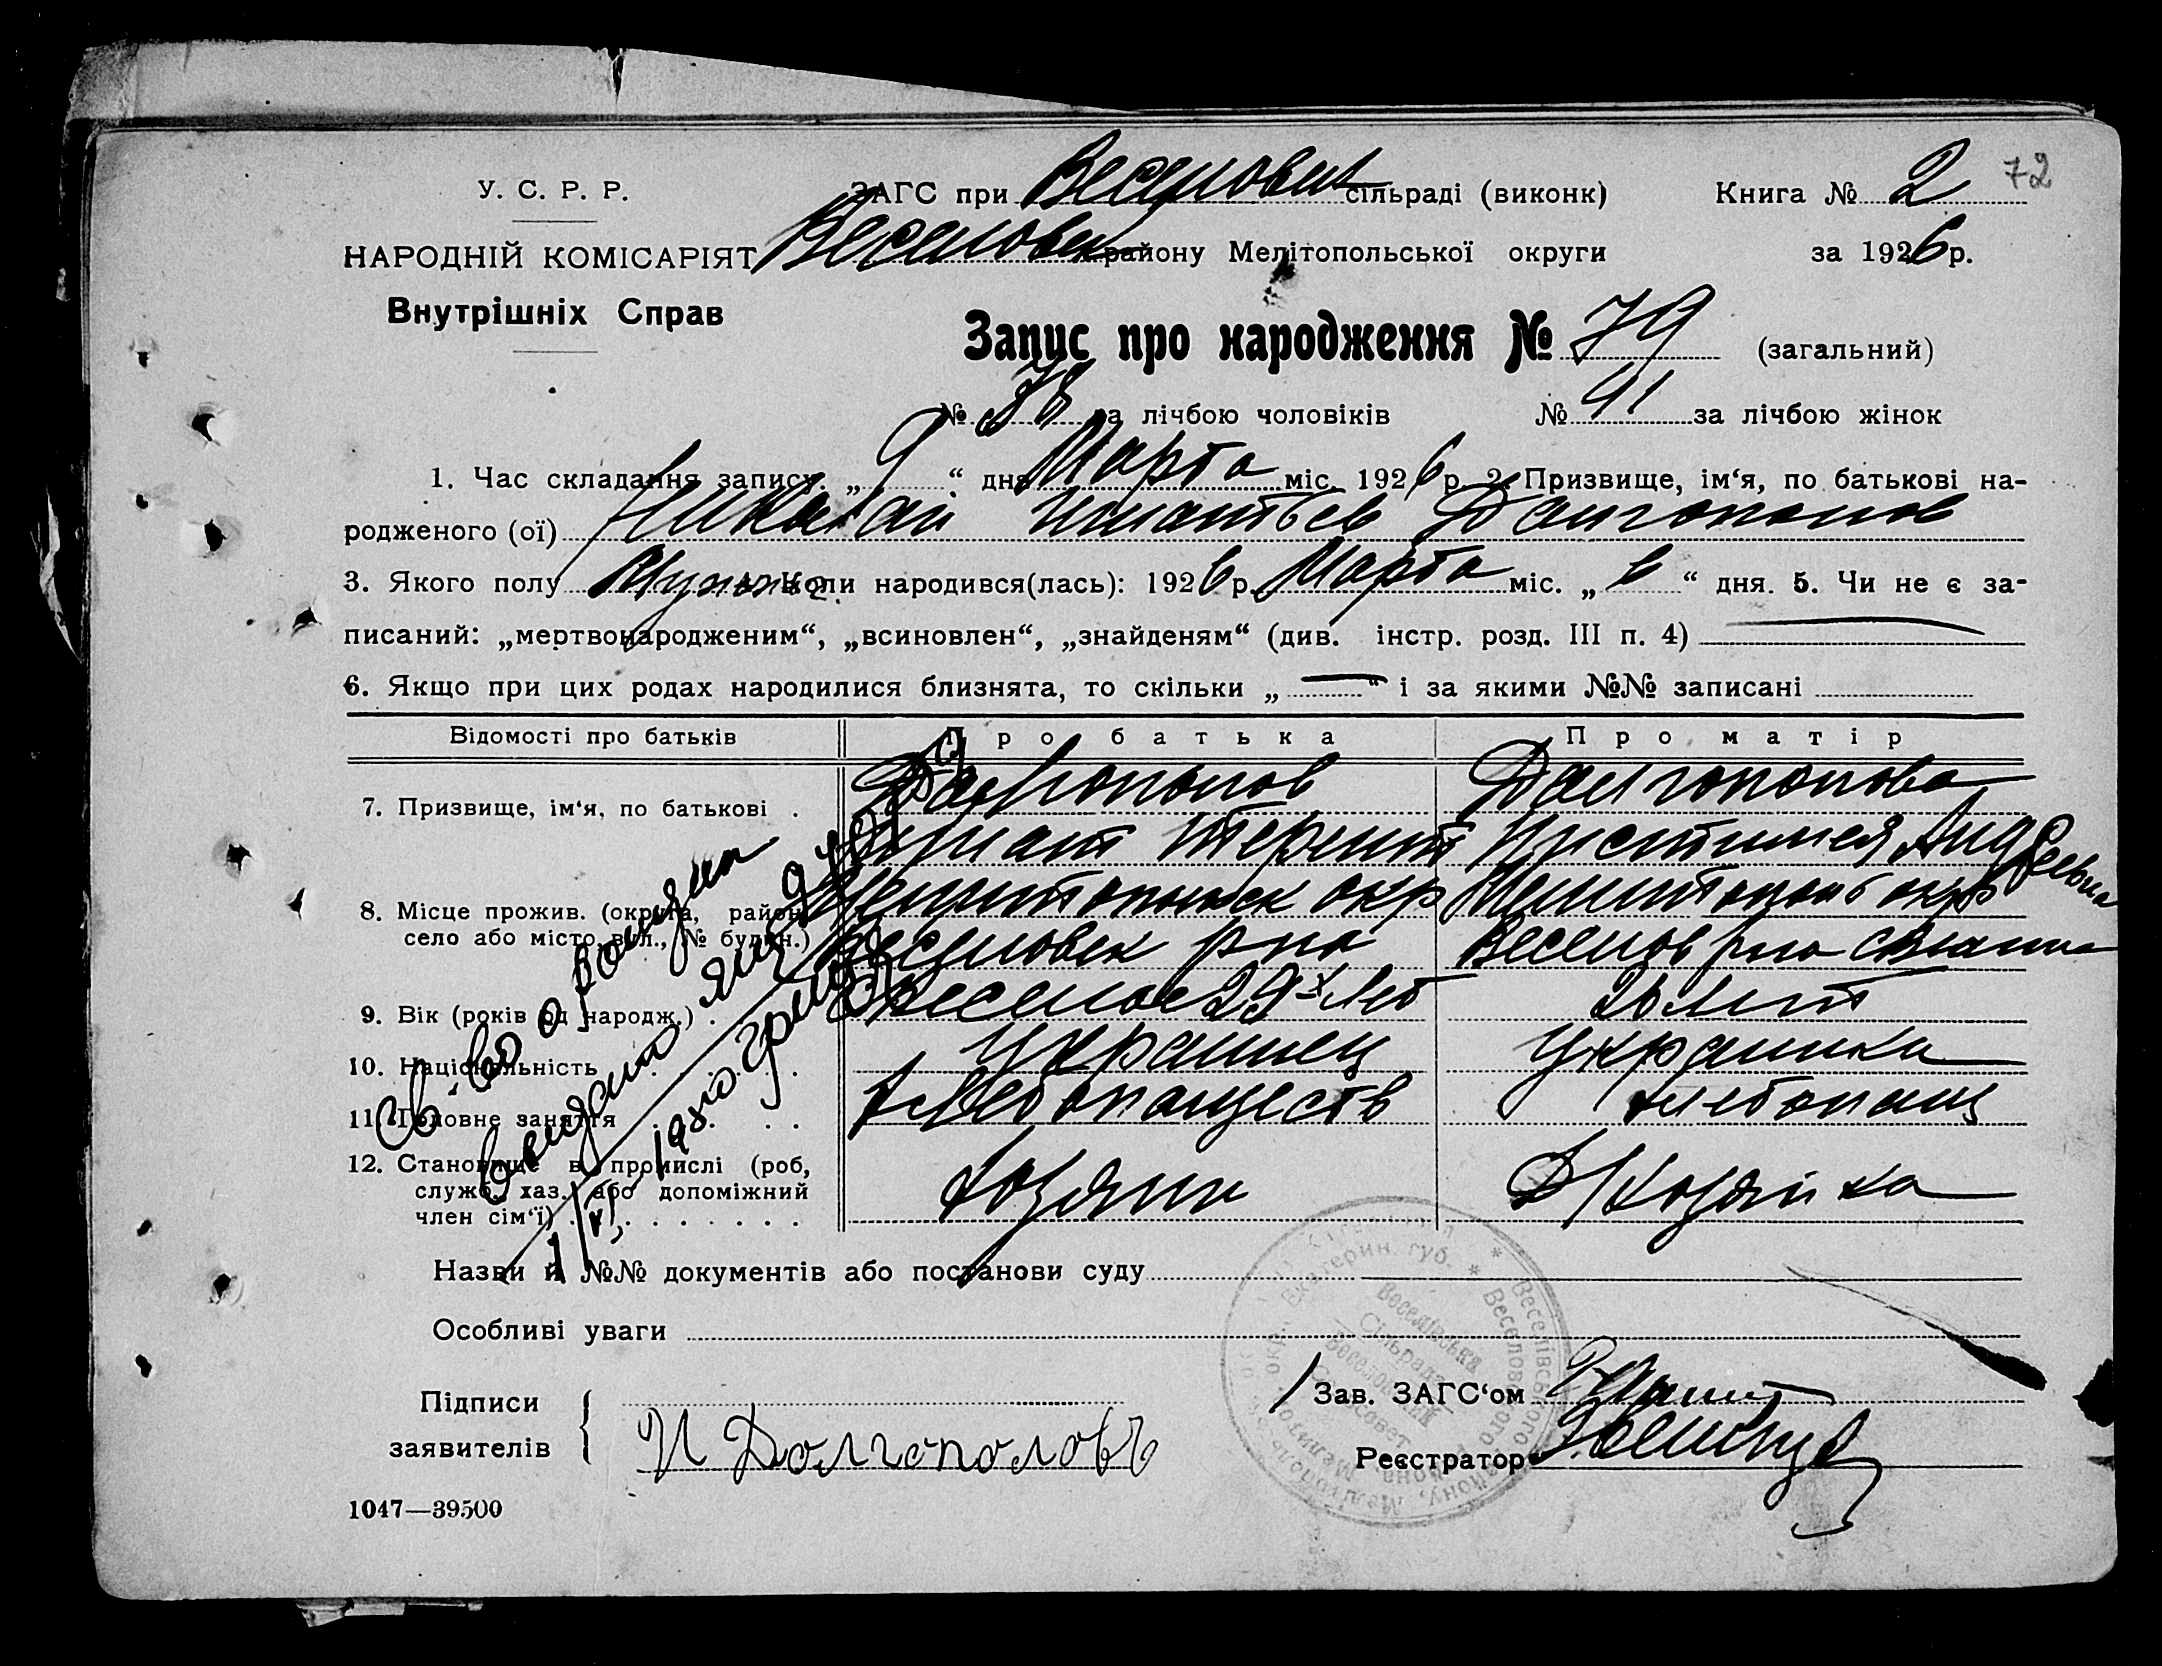 У. С. Р. Р.
ЗАГС при Веселовск сільраді (виконк) Книга № 2 72
НАРОДНІЙ КОМІСАРІЯТ Веселовск району Мелітопольської округи за 1926 р.
Внутрішніх Справ
Запис про народження № 79 (загальний)
№ 38 за лічбою чоловіків № 41 за лічбою жінок
1. Час складання запису. „ 9 “ дня Марта міс. 1926 р. 2. Призвище, ім‘я, по батькові на-
родженого (ої) Николай Долгополов
3. Якого полу 4. Коли народився(лась): 1926 р. Марта міс. „ 6 “ дня. 5. Чи не є за-
писаний: „мертвонародженим“, „всиновлен“, „знайденям“ (див. інстр. розд. III п. 4) —
6. Якщо при цих родах народилися близнята, то скільки „ — “ і за якими №№ записані
Відомості про батьків Про батька Про матір
7. Призвище, ім‘я, по батькові . Долгополов Долгополова
Игнат Терент Андреевна
8. Місце прожив. (округа, район, Мелитопольск окр Мелитополь окр
село або місто, вул., № будин.) Веселовск рна Веселов рна
9. Вік (років од народж.) . Веселое 29 лет 26 лет
10. Національність Украинец Украинка
11. Головне заняття Хлебопашеств хлебопаш
12. Становище в промислі (роб, Хозяин Д/хозяйка
служб. хаз. або допоміжний
член сім‘ї)
Св-во о рождении
Назви й №№ документів або постанови суду
Особливі уваги
Підписи
заявителів И Долгополовъ
Зав. ЗАГС‘ом
Реєстратор
1047—39500